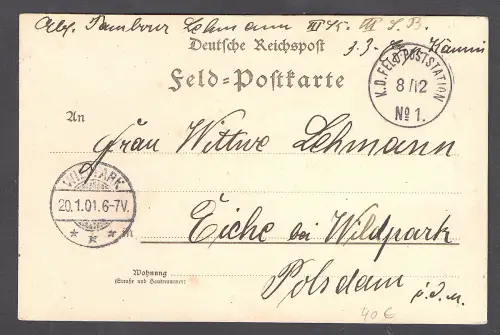 Tambour Lehmann
Deutsche Reichspost
Feld-Postkarte
K.D. FELD-POSTSTATION
8/12
No 1.
An
Frau Wittwe Lehmann
WILDPARK
20.1.01.6-7V.
in
Eiche bei Wildpark
Wohnung
(Straße und Hausnummer)
Potsdam
40 €